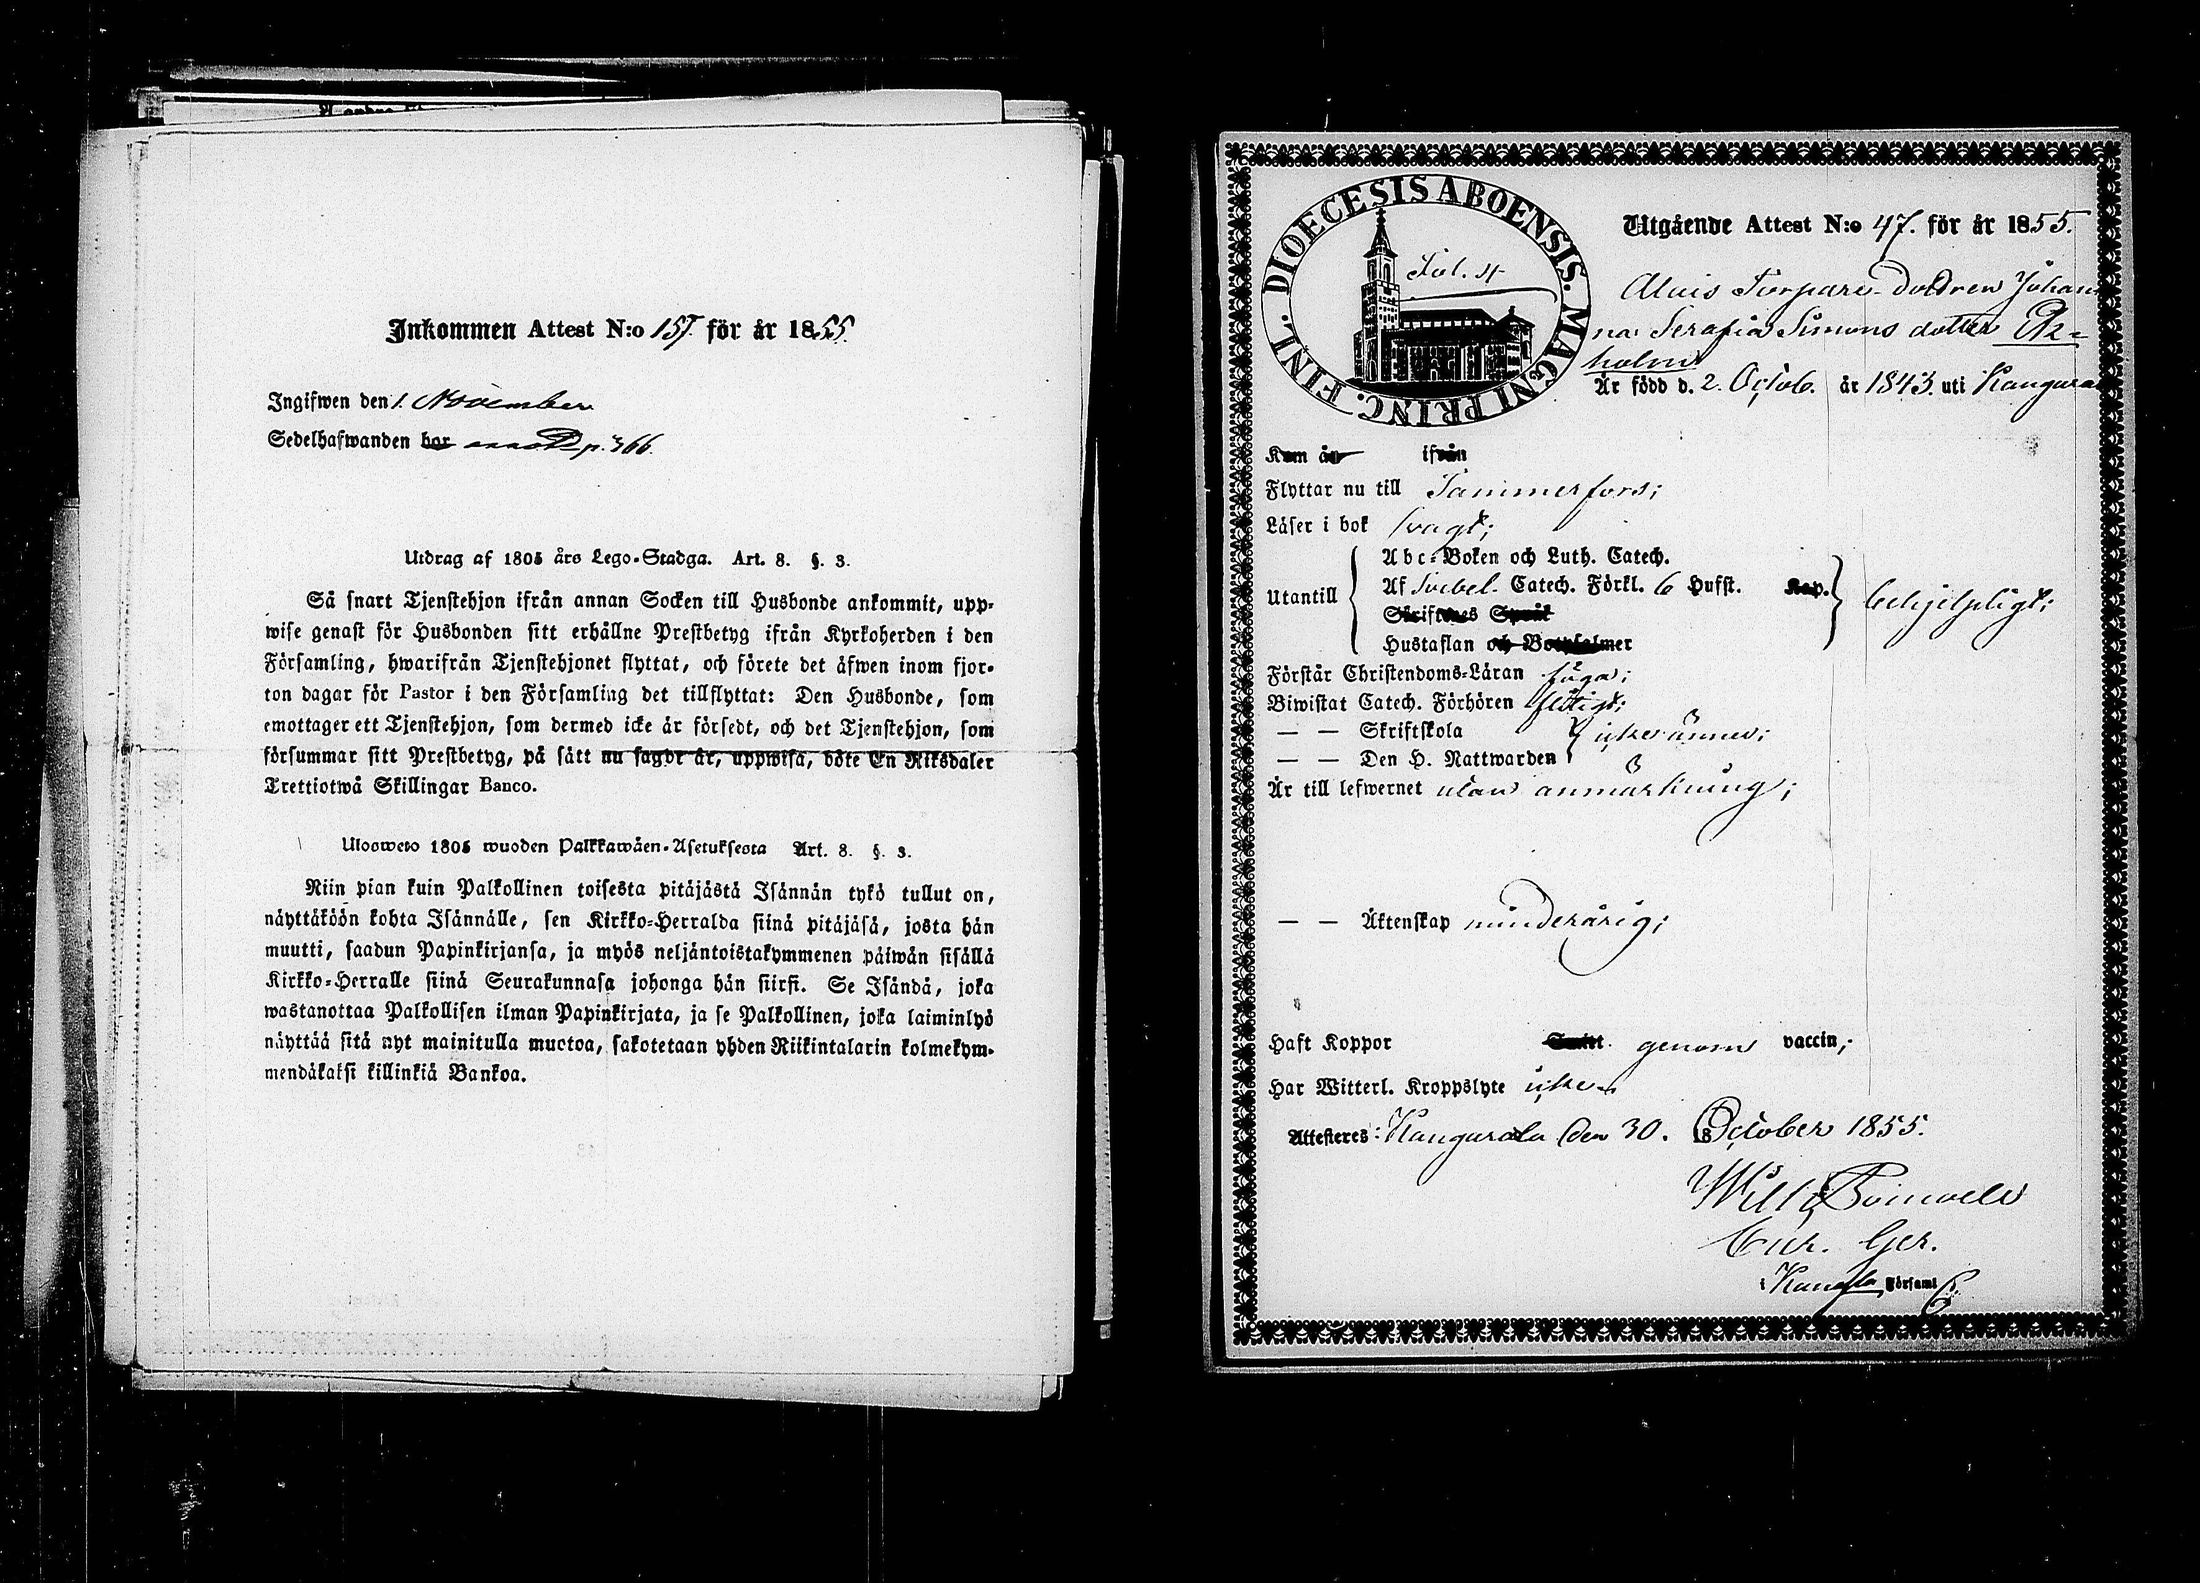 Inkommen Attest N:o 157. för år 1855.
Ingifwen den 1. November
Sedelhafwanden bor p. 366.
Utdrag af 1805 års Lego-Stadga. Art. 8. §. 3.
Så snart Tjenstehjon ifrån annan Socken till Husbonde ankommit, upp-
wise genast för Husbonden sitt erhållne Prestbetyg ifrån Kyrkoherden i den
Församling, hwarifrån Tjenstehjonet flyttat, och förete det äfwen inom fjor-
ton dagar för Pastor i den Församling det tillflyttat: Den Husbonde, som
emottager ett Tjenstehjon, som dermed icke är försedt, och det Tjenstehjon, som
försummar sitt Prestbetyg, på sätt nu sagdt är, uppwisa, böte En Riksdaler
Trettiotwå Skillingar Banco.
Ulosweto 1805 wuoden Palkkawäen-Asetuksesta Art. 8. §. 3.
Niin pian kuin Palkollinen toisesta pitäjästä Isännän tykö tullut on,
näyttäköön kohta Isännälle, sen Kirkko-Herralda siinä pitäjäsä, josta hän
muutti, saadun Papinkirjansa, ja myös neljäntoistakymmenen päiwän sisällä
Kirkko-Herralle siinä Seurakunnasa johonga hän siirsi. Se Isändä, joka
wastanottaa Palkollisen ilman Papinkirjata, ja se Palkollinen, joka laiminlyö
näyttää sitä nyt mainitulla muotoa, sakotetaan yhden Riikintalarin kolmekym-
mendäkaksi killinkiä Bankoa.
DIOECESIS ABOENSIS. MAGNI PRINC. FINL.
Utgående Attest N:o 47. för år 1855.
Torpare-dottren Johan-
na Serafia Simons dotter Ek-
holm
Är född d. 2. Octob. år 1843. uti Kangasala
Kom år ifrån
Flyttar nu till Tammerfors;
Läser i bok svagt;
Utantill
Abc-Boken och Luth. Catech.
Af Svebel. Catech. Förkl. 6 Hufst. Kap.
Skriftenes Språk
Hustaflan och Botpsalmer
behjelpligt;
Förstår Christendoms-Läran föga;
Biwistat Catech. Förhören flitigt;
— — Skriftskola
— — Den H. Nattwarden
icke ännu;
Är till lefwernet utan anmärkning;
— — Äktenskap minderårig;
Haft Koppor Smitt. genom vaccin;
Har Witterl. Kroppslyte icke
Attesteras: Kangasala den 30. 18 October 1855.
Cur. Ger.
i Kangsla Församl.